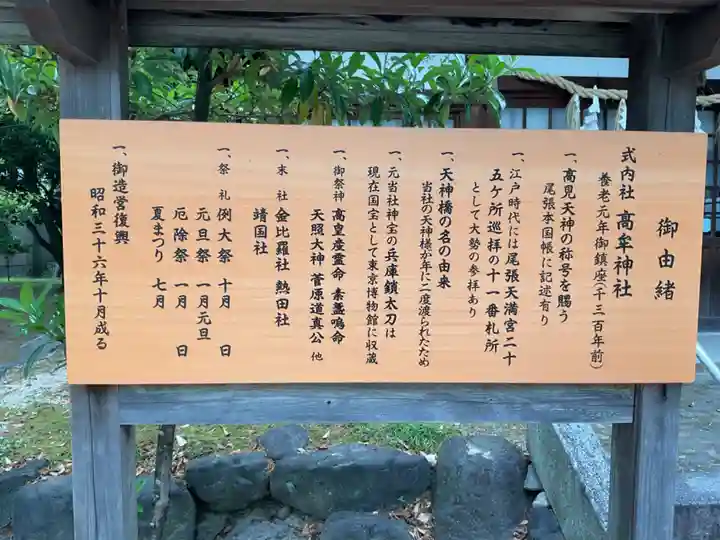 御由緒
式内社 高牟神社
養老元年御鎮座(千三百年前)
一、高見天神の称号を賜う
尾張本国帳に記述有り
一、江戸時代には尾張天満宮二十
五ケ所巡拝の十一番札所
として大勢の参拝あり
一、天神橋の名の由来
当社の天神様が年に二度渡られたため
一、元当社神宝の兵庫鎖太刀は
現在国宝として東京博物館に収蔵
一、御祭神 高皇産霊命 素盞嗚命
天照大神 菅原道真公 他
一、末社 金比羅社 熱田社
靖国社
一、祭礼 例大祭 十月 日
元旦祭 一月元旦
厄除祭 一月 日
夏まつり 七月
一、御造営復興
昭和三十六年十月成る